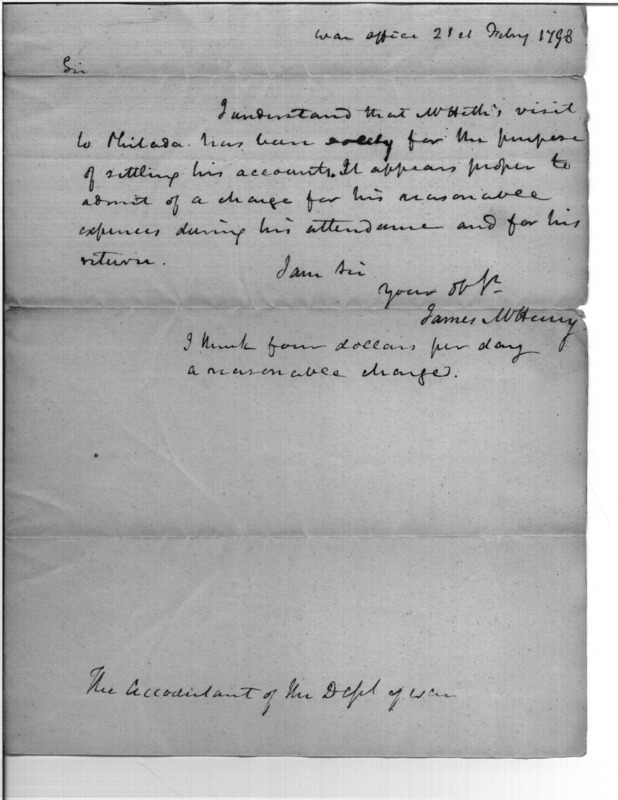 War office 21st Feby 1798
Sir
I understand that Mr Heth's visit
to Philada. has been solely for the purpose
of settling his accounts. It appears proper to
admit of a charge for his reasonable
expences during his attendance and for his
return.
I am Sir
your ob St
James McHenry
I think four dollars per day
a reasonable charge.
The Accountant of the Dept of war